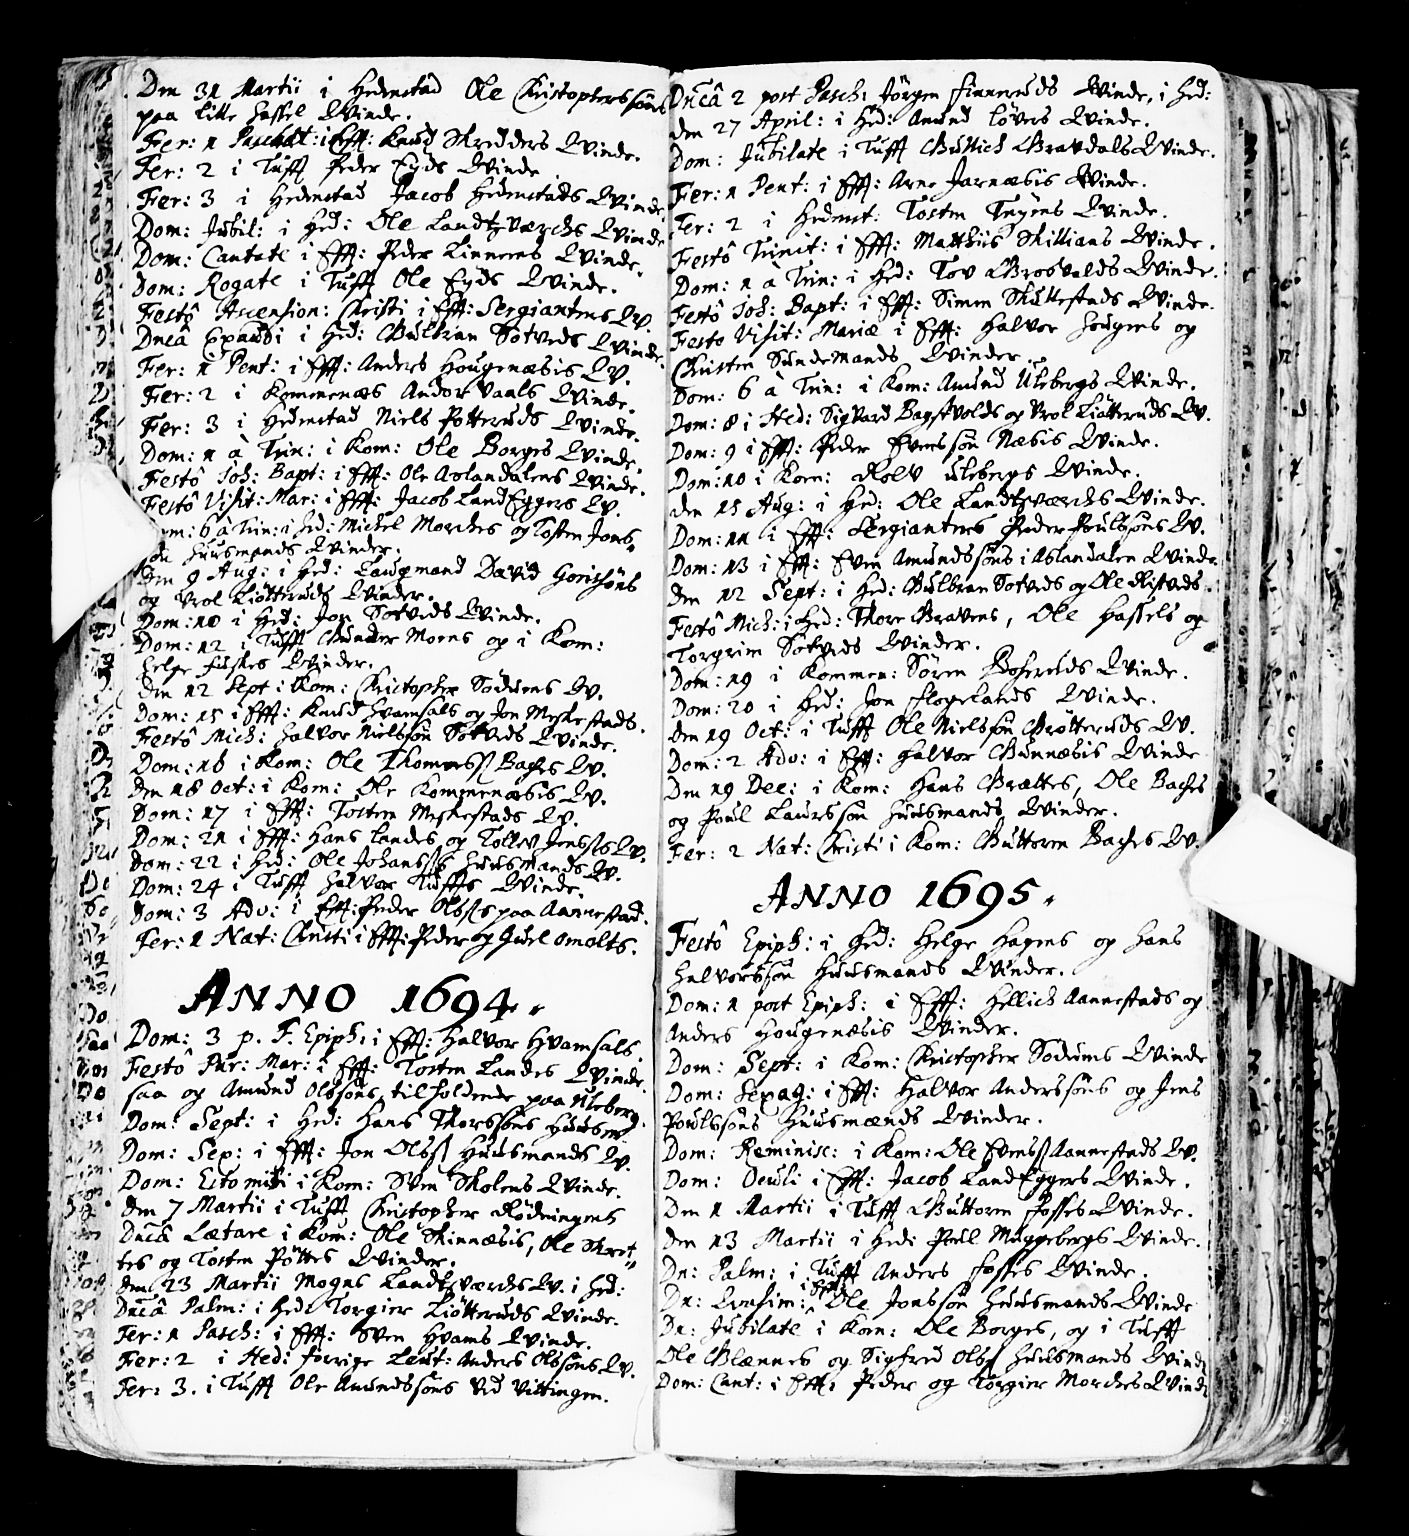 Den 31 Martii i Hedenstad Ole Christophersføns
paa Lille Hassel Qvinde.
Fer: 1 Paschat: i Efft: Knud Skredders Qvinde.
Fer: 2 i Tufft Peder Eyds Qvinde
Fer: 3 i Hedenstad Jacob Hedenstads Qvinde
Dom: Jubil: i Hed: Ole Landtzværchs Qvinde
Dom: Cantate i Efft: Peder Linnerus Qvinde.
Dom: Rogate i Tufft Ole Eyds Qvinde.
Festô Ascension: Christi i Efft: Sergiantens Qv.
Dnicâ Exaudi i Hed: Gulbran Sotveds Qvinde.
Fer: 1 Pent: i Efft: Anders Hougenæsis Qv.
Fer: 2 i Kommenæs Andor Vaals Qvinde.
Fer: 3 i Hedenstad Niels Potteruds Qvinde.
Dom: 1 à Trin: i Kom: Ole Borges Qvinde.
Festô Joh: Bapt: i Efft: Ole Aslandalens Qvinde.
Festô Visit: Mar: i Efft: Jacob LandEggers Qv.
Dom: 6 à Trin: i Hed: Michel Morches og Tosten Jons-
søn Huusmands Qvinder.
Den 9 Aug: i Hed: Laugmand David Gorissøns
og Vrol Liøtteruds Qvinder.
Dom: 10 i Hed: Jon Sotveds Qvinde.
Dom: 12 i Tufft Gunder Moens og i Kom:
Helge Fuskes Qvinder.
Den 12 Sept i Kom: Christopher Sodums Qv.
Dom: 15 i Efft: Knud Hvamsals og Jon Meskestads.
Festô Mich: Halvor Nielssøn Sotveds Qvinde.
Dom: 16 i Kom: Ole Thomessß Baches Qv.
Den 18 Oct: i Kom: Ole Kommenæsis Qv.
Dom: 17 i Efft: Tosten Meskestads Qv.
Dom: 21 i Efft: Hans Landes og Tollev Jensßs Qv.
Dom: 22 i Hed: Ole Johansßs Huusmands Qv.
Dom: 24 i Tufft Halvor Tuffts Qvinde.
Dom: 3 Adv: i Efft: Peder Olsßs paa Aannestad.
Fer: 1 Nat: Christi i Efft: Peder og Juel Omolts.
ANNO 1694.
Dom: 3 p. F. Epiph: i Efft: Halvor Hvamsals.
Festô Pur: Mar: i Efft: Tosten Landes Qvinde.
saa og Amund Olssøns, tilholdende paa Uleberg.
Dom: Sept: i Hed: Hans Thorssøns Huusm:
Dom: Sex: i Efft: Jon Olsß Huusmands Qv.
Dom: Estomihi i Kom: Sven Skolens Qvinde.
Den 7 Martii i Tufft Christopher Rødningens
Dnicâ Lætare i Kom: Ole Skinnæsis, Ole Skret-
tes og Tosten Pottes Qvinder.
Den 23 Martii Mogns Landtzværchs Qv. i Hed:
Dnicâ Palm: i Hed: Torgier Liøtteruds Qvinde.
Fer: 1 Pasch: i Efft: Sven Hvams Qvinde.
Fer: 2 i Hed: forrige Leut: Anders Olssøns Qv.
Fer: 3. i Tufft Ole Amundssøns ved Vittingen.
Dnicâ 2 post Pasch: Jørgen Finneruds Qvinde, i Hed:
Den 27 April: i Hed: Amund Løvers Qvinde.
Dom: Jubilate i Tufft Gullich Gravdals Qvinde.
Fer: 1 Pent: i Efft: Arne Jarnæsis Qvinde.
Fer: 2 i Hedenst: Tosten Teyens Qvinde.
Festô Trinit: i Efft: Matthiis Skillians Qvinde.
Dom: 1 à Trin: i Hed: Tov Grosvolds Qvinde.
Festô Joh: Bapt: i Efft: Simen Skullestads Qvinde.
Festo Visit: Mariæ i Efft: Halvor Hougens og
Christen Sundemands Qvinder.
Dom: 6 à Trin: i Kom: Amund Ulebergs Qvinde.
Dom: 8 i Hed: Sigvard Bagstvolds og Vrol Liøtteruds Qv.
Dom: 9 i Efft: Peder Evenssøn Næsis Qvinde.
Dom: 10 i Kom: Rolv Ulebergs Qvinde.
Den 15 Aug: i Hed: Ole Landtzværchs Qvinde.
Dom: 11 i Efft: Sergiantens Peder Poulssøns Qv.
Dom: 13 i Efft: Even Amundssøns i Aslandalen Qvinde
Den 12 Sept: i Hed: Gulbran Sotveds og Ole Ristveds.
Festô Mich: i Hed: Thore Gravens, Ole Hassels og
Torgrim Sotveds Qvinder.
Dom: 19 i Kommen: Søren Boseruds Qvinde.
Dom: 20 i Hed: Jon Skogelands Qvinde.
Den 19 Oct: i Tufft Ole Nielssøn Grøtteruds Qv.
Dom: 2 Adv: i Efft: Halvor Gunnæsis Qvinde
Den 19 Dec: i Kom: Hans Brættes, Ole Baches
og Poul Laurssøn Huusmands Qvinder.
Fer: 2 Nat: Christi i Kom: Guttorm Baches Qv.
ANNO 1695.
Festô Epiph: i Hed: Helge Hagens og Hans
Halvorssøn Huusmands Qvinder.
Dom: 1 post Epiph: i Efft: Hellich Aannestads og
Anders Hougenæsis Qvinder.
Dom: Sept: i Kom: Christopher Sodums Qvinde
Dom: Sexag: i Efft: Halvor Anderssøns og Jens
Poulssøns Huusmænds Qvinder.
Dom: Reminisc: i Kom: Ole Evensß Aannestads Qv.
Dom: Oculi i Efft: Jacob LandEggers Qvinde.
Den 1 Martii i Tufft Guttorm Fosses Qvinde.
Den 13 Martii i Hed: Poul Muggebergs Qvinde.
Dn: Palm: i Tufft Anders Fosses Qvinde.
Dn: Qvasim: i Efft: Ole Jonssøn Huusmands Qvinde
Dn: Jubilate i Kom: Ole Borges, og i Tufft
Ole Blænnes og Sigfred Olsß Huusmands Qvind
Dom: Cant: i Efft: Peder og Torgier Morches Qvind